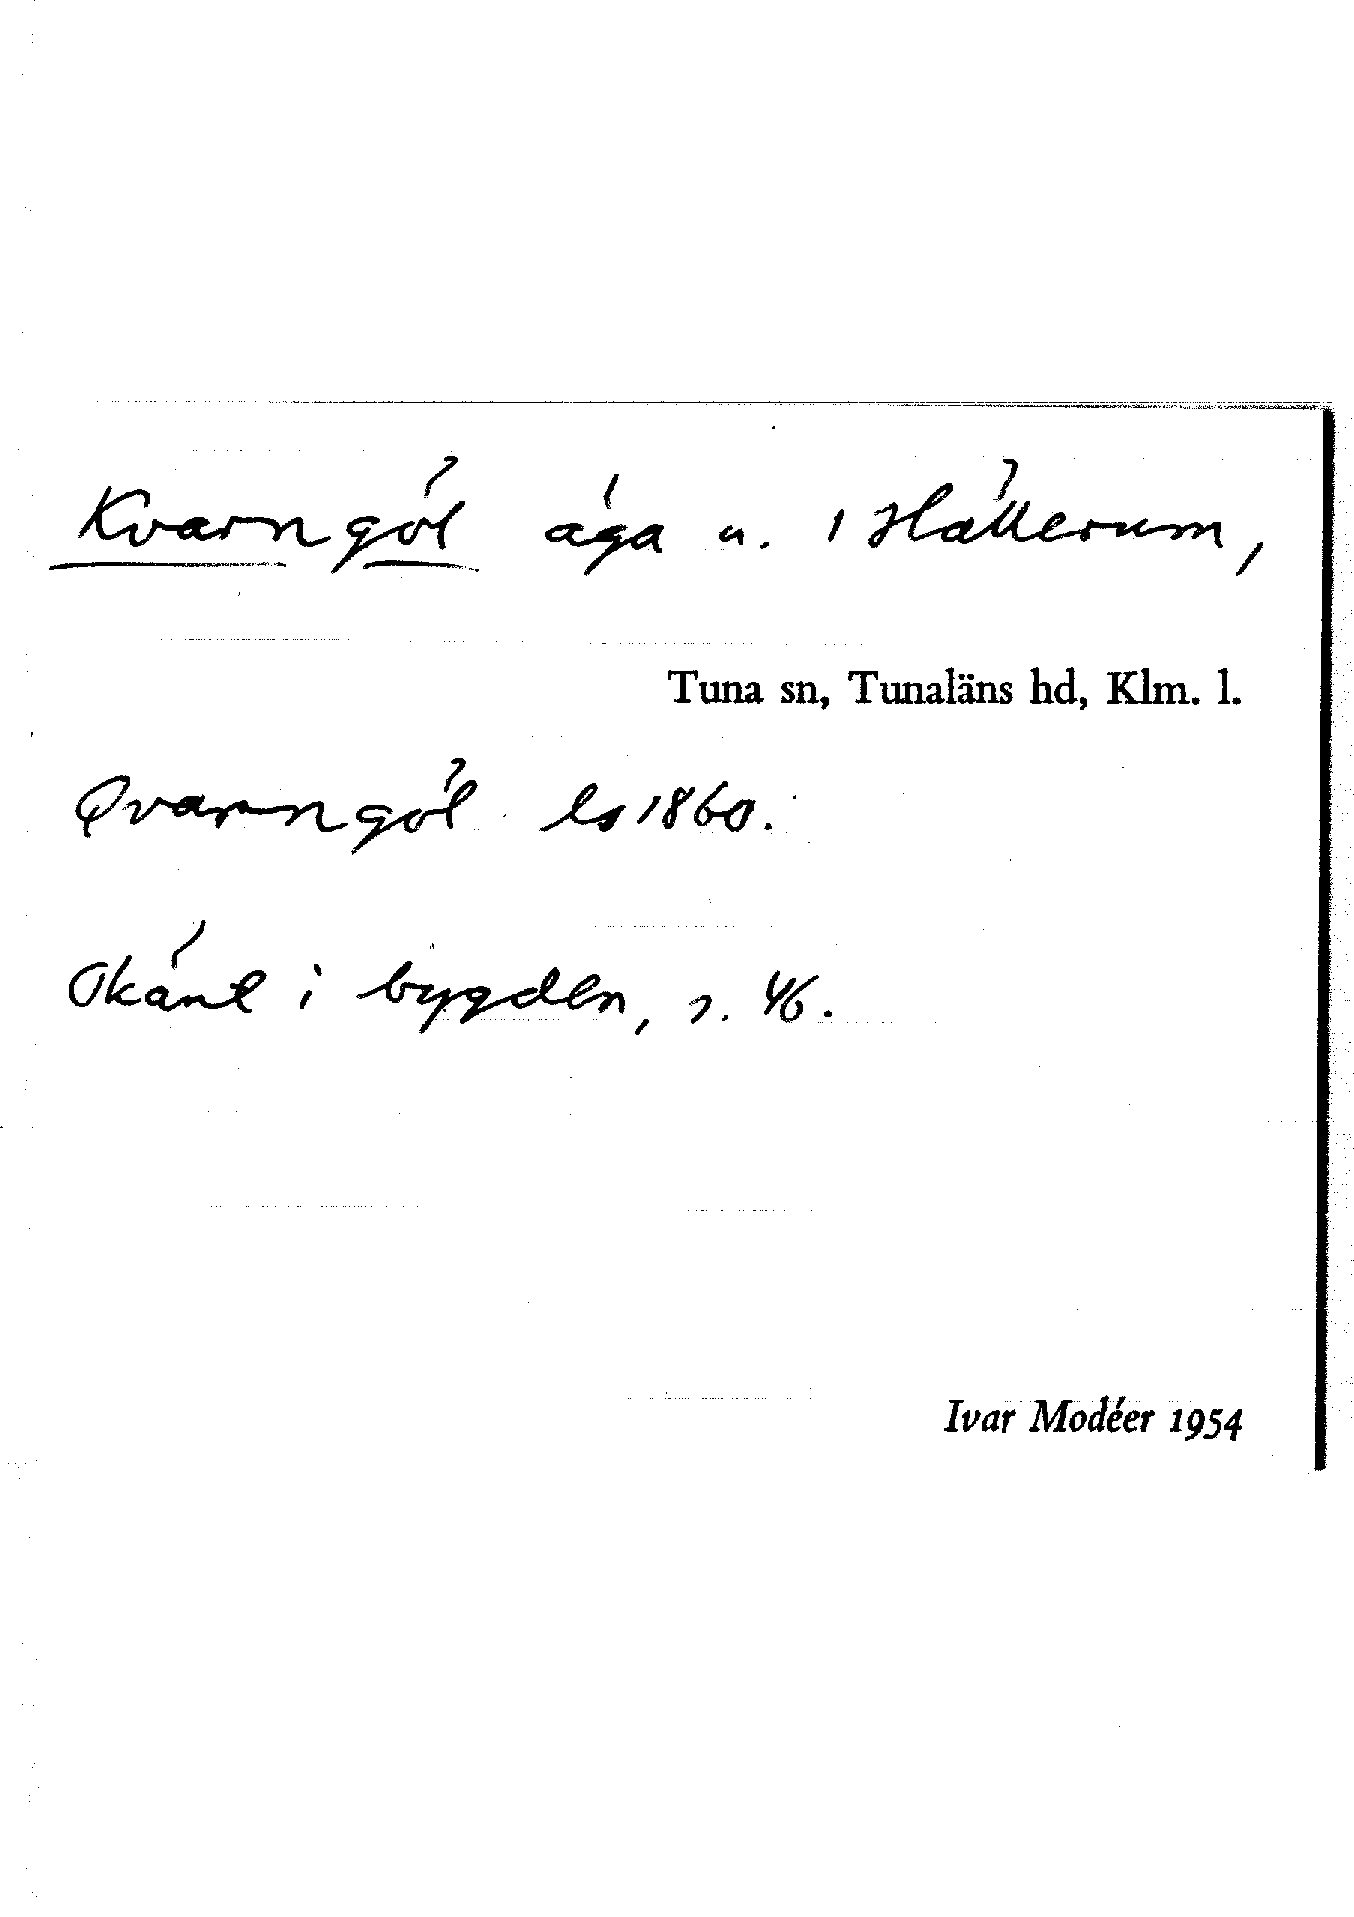 Kvarngöl äga n. 1 Hällerum,
Tuna sn, Tunaläns hd, Klm. l.
Qvarngöl ls 1860.
Okänt i bygden, s. 46.
Ivar Modéer 1954